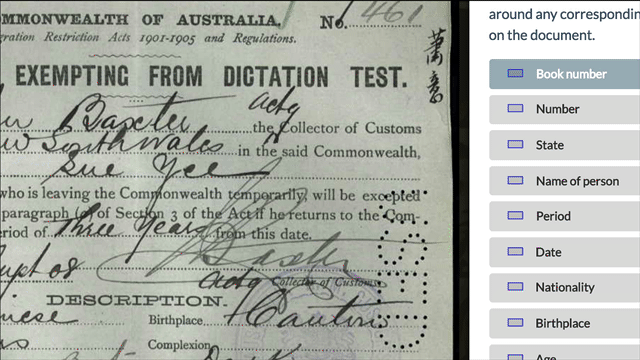 MMONWEALTH OF AUSTRALIA.
No. 461
gration Restriction Acts 1901-1905 and Regulations.
EXEMPTING FROM DICTATION TEST.
Baxter actg the Collector of Customs
South Wales in the said Commonwealth,
Sue Yee
who is leaving the Commonwealth temporarily, will be excepted
paragraph of Section 3 of the Act if he returns to the Com-
eriod of three years from this date.
Baxter
pt 08
actg Collector of Customs.
DESCRIPTION.
nese Birthplace Canton
Complexion
around any correspondin
on the document.
Book number
Number
State
Name of person
Period
Date
Nationality
Birthplace
Age